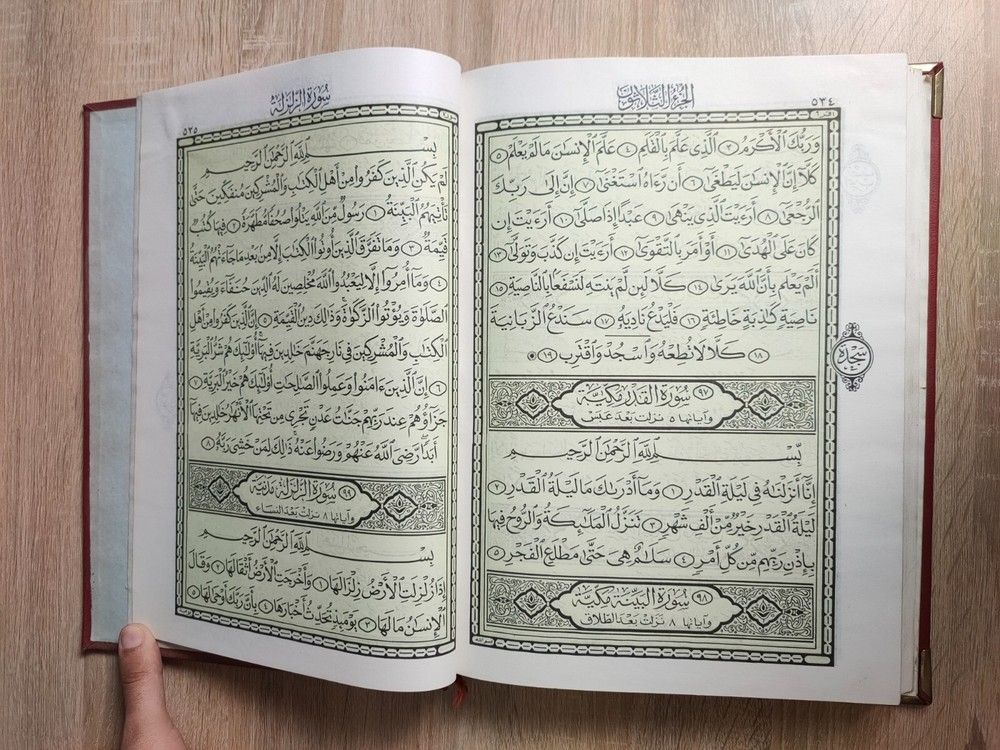 الجزء الثلاثون ٥٣٤
وَرَبُّكَ ٱلْأَكْرَمُ ٣ ٱلَّذِى عَلَّمَ بِٱلْقَلَمِ ٤ عَلَّمَ ٱلْإِنسَـٰنَ مَا لَمْ يَعْلَمْ ٥
كَلَّآ إِنَّ ٱلْإِنسَـٰنَ لَيَطْغَىٰٓ ٦ أَن رَّءَاهُ ٱسْتَغْنَىٰٓ ٧ إِنَّ إِلَىٰ رَبِّكَ
ٱلرُّجْعَىٰٓ ٨ أَرَءَيْتَ ٱلَّذِى يَنْهَىٰ ٩ عَبْدًا إِذَا صَلَّىٰٓ ١٠ أَرَءَيْتَ إِن
كَانَ عَلَى ٱلْهُدَىٰٓ ١١ أَوْ أَمَرَ بِٱلتَّقْوَىٰٓ ١٢ أَرَءَيْتَ إِن كَذَّبَ وَتَوَلَّىٰٓ ١٣
أَلَمْ يَعْلَم بِأَنَّ ٱللَّهَ يَرَىٰ ١٤ كَلَّا لَئِن لَّمْ يَنتَهِ لَنَسْفَعًۢا بِٱلنَّاصِيَةِ ١٥
نَاصِيَةٍ كَـٰذِبَةٍ خَاطِئَةٍ ١٦ فَلْيَدْعُ نَادِيَهُۥ ١٧ سَنَدْعُ ٱلزَّبَانِيَةَ
١٨ كَلَّا لَا تُطِعْهُ وَٱسْجُدْ وَٱقْتَرِب ١٩
سجدة
٩٧ سورة القدر مكية
وآياتها ٥ نزلت بعد عبس
بِسْمِ ٱللَّهِ ٱلرَّحْمَـٰنِ ٱلرَّحِيمِ
إِنَّآ أَنزَلْنَـٰهُ فِى لَيْلَةِ ٱلْقَدْرِ ١ وَمَآ أَدْرَىٰكَ مَا لَيْلَةُ ٱلْقَدْرِ ٢
لَيْلَةُ ٱلْقَدْرِ خَيْرٌ مِّنْ أَلْفِ شَهْرٍ ٣ تَنَزَّلُ ٱلْمَلَـٰٓئِكَةُ وَٱلرُّوحُ فِيهَا
بِإِذْنِ رَبِّهِم مِّن كُلِّ أَمْرٍ ٤ سَلَـٰمٌ هِىَ حَتَّىٰ مَطْلَعِ ٱلْفَجْرِ ٥
٩٨ سورة البينة مكية
وآياتها ٨ نزلت بعد الطلاق
سورة الزلزلة ٥٣٥
بِسْمِ ٱللَّهِ ٱلرَّحْمَـٰنِ ٱلرَّحِيمِ
لَمْ يَكُنِ ٱلَّذِينَ كَفَرُوا۟ مِنْ أَهْلِ ٱلْكِتَـٰبِ وَٱلْمُشْرِكِينَ مُنفَكِّينَ حَتَّىٰ
تَأْتِيَهُمُ ٱلْبَيِّنَةُ ١ رَسُولٌ مِّنَ ٱللَّهِ يَتْلُوا۟ صُحُفًا مُّطَهَّرَةً ٢ فِيهَا كُتُبٌ
قَيِّمَةٌ ٣ وَمَا تَفَرَّقَ ٱلَّذِينَ أُوتُوا۟ ٱلْكِتَـٰبَ إِلَّا مِنۢ بَعْدِ مَا جَآءَتْهُمُ ٱلْبَيِّنَةُ
٤ وَمَآ أُمِرُوٓا۟ إِلَّا لِيَعْبُدُوا۟ ٱللَّهَ مُخْلِصِينَ لَهُ ٱلدِّينَ حُنَفَآءَ وَيُقِيمُوا۟
ٱلصَّلَوٰةَ وَيُؤْتُوا۟ ٱلزَّكَوٰةَ وَذَٰلِكَ دِينُ ٱلْقَيِّمَةِ ٥ إِنَّ ٱلَّذِينَ كَفَرُوا۟ مِنْ أَهْلِ
ٱلْكِتَـٰبِ وَٱلْمُشْرِكِينَ فِى نَارِ جَهَنَّمَ خَـٰلِدِينَ فِيهَآ أُو۟لَـٰٓئِكَ هُمْ شَرُّ ٱلْبَرِيَّةِ
٦ إِنَّ ٱلَّذِينَ ءَامَنُوا۟ وَعَمِلُوا۟ ٱلصَّـٰلِحَـٰتِ أُو۟لَـٰٓئِكَ هُمْ خَيْرُ ٱلْبَرِيَّةِ ٧
جَزَآؤُهُمْ عِندَ رَبِّهِمْ جَنَّـٰتُ عَدْنٍ تَجْرِى مِن تَحْتِهَا ٱلْأَنْهَـٰرُ خَـٰلِدِينَ فِيهَآ
أَبَدًا رَّضِىَ ٱللَّهُ عَنْهُمْ وَرَضُوا۟ عَنْهُ ذَٰلِكَ لِمَنْ خَشِىَ رَبَّهُۥ ٨
٩٩ سورة الزلزلة مدنية
وآياتها ٨ نزلت بعد النساء
بِسْمِ ٱللَّهِ ٱلرَّحْمَـٰنِ ٱلرَّحِيمِ
إِذَا زُلْزِلَتِ ٱلْأَرْضُ زِلْزَالَهَا ١ وَأَخْرَجَتِ ٱلْأَرْضُ أَثْقَالَهَا ٢ وَقَالَ
ٱلْإِنسَـٰنُ مَا لَهَا ٣ يَوْمَئِذٍ تُحَدِّثُ أَخْبَارَهَا ٤ بِأَنَّ رَبَّكَ أَوْحَىٰ لَهَا ٥